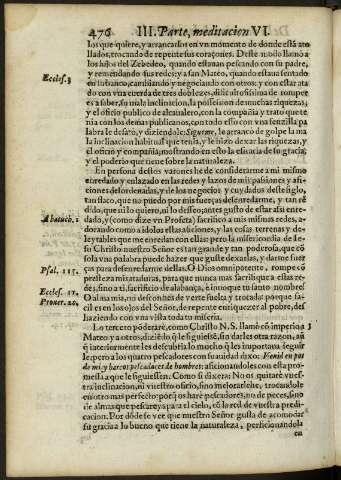 476 III. Parte, meditacion VI.
los que quiere, y arrancarlos en vn momento de donde està ato
llados, trocando de repente sus coraçones. Deste modo llamò a
los hijos del Zebedeo, quando estauan pescando con su padre,
y remendando sus redes: y a san Mateo, quando estaua sentado
en su banco, cambiando y negociando con otros; y con estar ata
Eccles. 4
do con vna cuerda de tres dobleces, dificultosissima de romper,
es a saber, su mala inclinacion, la possession de muchas riquezas,
y el oficio publico de alcaualero, con la compañia y trato que te
nia con los demas publicanos, con todo esso con vna senzilla pa
labra le desatò, y diziendole: Sigueme, le arrancò de golpe la ma
la inclinacion habitual que tenia, y le hizo dexar las riquezas, y
el oficio y compañia, mostrando en esto la eficacia de su gracia,
y el poderio que tiene sobre la naturaleza.
En persona destos varones he de considerarme a mi mismo
enredado y enlazado en las redes y lazos de mis passiones y afi-
ciones desordenadas, y de los negocios y cuydados deste siglo,
tan flaco, que no puedo por mis fuerças desenredarme, y tan rē
dido, que ni lo quiero, ni lo desseo, antes gusto de estar assi enre-
Abacuch. 1
dado, y (como dize vn Profeta) sacrifico a mis mismas redes, a-
dorando como a idolos estas aficiones, y las cosas terrenas y de-
leytables que me enredan con ellas: pero la misericordia de Ie-
su Christo nuestro Señor es tan grande y tan poderosa, que cō
sola vna palabra puede hazer que guste dexarlas, y darme fuer
ças para desenredarme dellas. O Dios omnipotente, rompe cō
Psal. 115.
presteza mis ataduras, para que nunca mas sacrifique a estas re-
des, sino a ti, sacrificio de alabança, è inuoque tu santo nombre.
Eccles. 11.
O alma mia, no desconfies de verte suelta y trocada: porque fa-
Prouer. 20.
cil es en los ojos del Señor, de repente enriquecer al pobre, des
haziendo con vna vista toda tu miseria.
Lo tercero pōderarè, como Christo N. S. llamò cō imperio a 3
Mateo y a otros, diziēdo q̃ le siguiessē, sin darles otra razon, aū
q̃ interiormente les descubria lo mucho q̃ les importaua seguir
le: pero a los quatro pescadores con suauidad dixo: Venid en pos
de mi, y hareos pescadores de hombres: aficionandoles con esta pro-
messa a que le siguiessen. Como si dixera: No os quitarè vues-
tra inclinacion, ni vuestro oficio, sino mejorarelhe, trocandole
en otro mas perfecto: porq̃ os harè pescadores, no de peces, sino
de almas que pesqueys para el cielo, cō la red de vuestra predi-
cacion. Por dōde se vee que nuestro Señor gusta de acomodar
su gracia a lo bueno que tiene la naturaleza, perficionandola
en